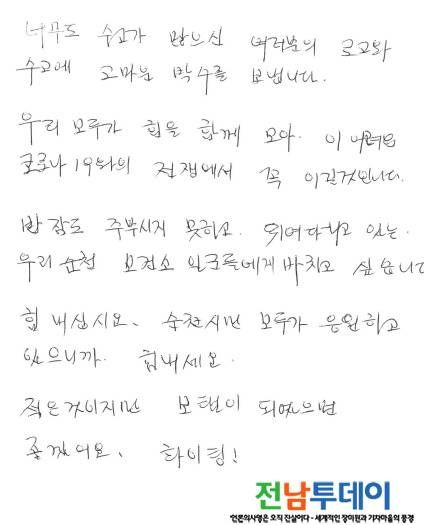 너무도 수고가 많으신 여러분의 노고와
수고에 고마운 박수를 보냅니다.
우리 모두가 힘을 함께 모아. 이 어려운
코로나 19와의 전쟁에서 꼭 이길것입니다.
밤 잠도 주무시지 못하고. 뛰어다니고 있는.
우리 순천 보건소 일꾼들에게 바치고 싶습니다
힘 내십시요. 순천시민 모두가 응원하고
있으니까. 힘내세요.
적은것이지만 보탬이 되었으면
좋겠어요. 화이팅!
전남투데이
언론의사명은 오직 진실이다 - 세계적인 장미원과 기차마을의 풍경